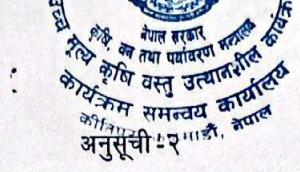 नेपाल सरकार
कृषि, वन तथा पर्यावरण मन्त्रालय
उच्च मूल्य कृषि वस्तु उत्थानशील कार्यक्रम
कार्यक्रम समन्वय कार्यालय
नेपाल
अनुसूची -२